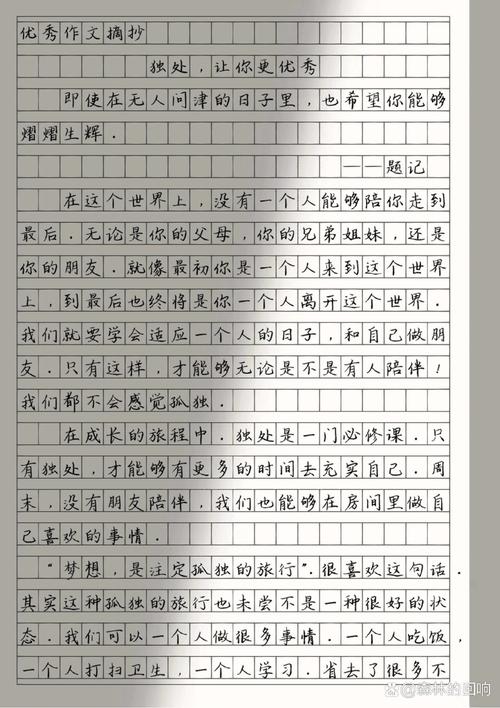 优秀作文摘抄
独处，让你更优秀
即使在无人问津的日子里，也希望你能够
熠熠生辉．
——题记
在这个世界上，没有一个人能够陪你走到
最后．无论是你的父母，你的兄弟姐妹，还是
你的朋友．就像最初你是一个人来到这个世界
上，到最后也终将是你一个人离开这个世界．
我们就要学会适应一个人的日子，和自己做朋
友．只有这样，才能够无论是不是有人陪伴！
我们都不会感觉孤独．
在成长的旅程中．独处是一门必修课．只
有独处，才能够有更多的时间去充实自己．周
末，没有朋友陪伴，我们也能够在房间里做自
己喜欢的事情．
“梦想，是注定孤独的旅行”．很喜欢这句话．
其实这种孤独的旅行也未尝不是一种很好的状
态．我们可以一个人做很多事情．一个人吃饭，
一个人打扫卫生，一个人学习．省去了很多不
@森林的回响